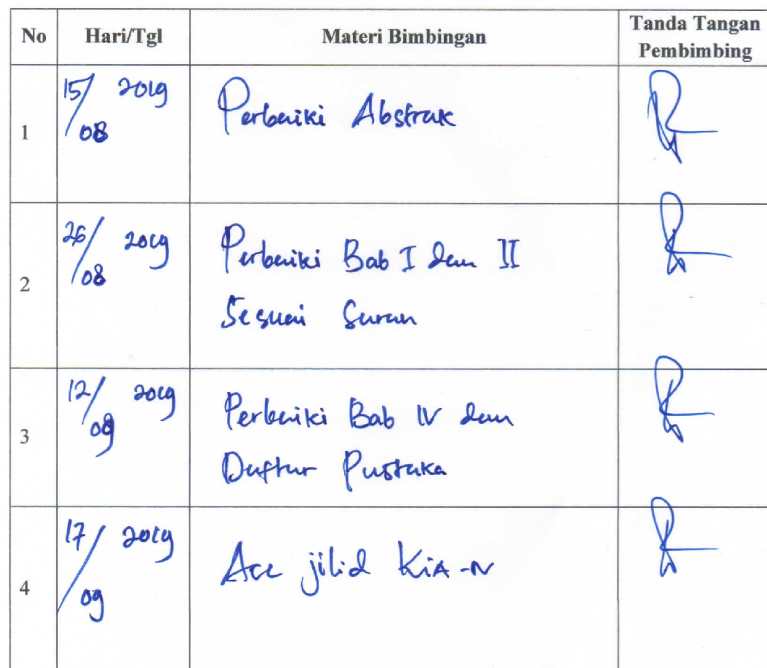 No Hari/Tgl Materi Bimbingan Tanda Tangan
Pembimbing
1 15/08 2019 Perbaiki Abstrak
2 26/08 2019 Perbaiki Bab I dan II
Sesuai Saran
3 12/09 2019 Perbaiki Bab IV dan
Daftar Pustaka
4 17/09 2019 Acc jilid KIA-N